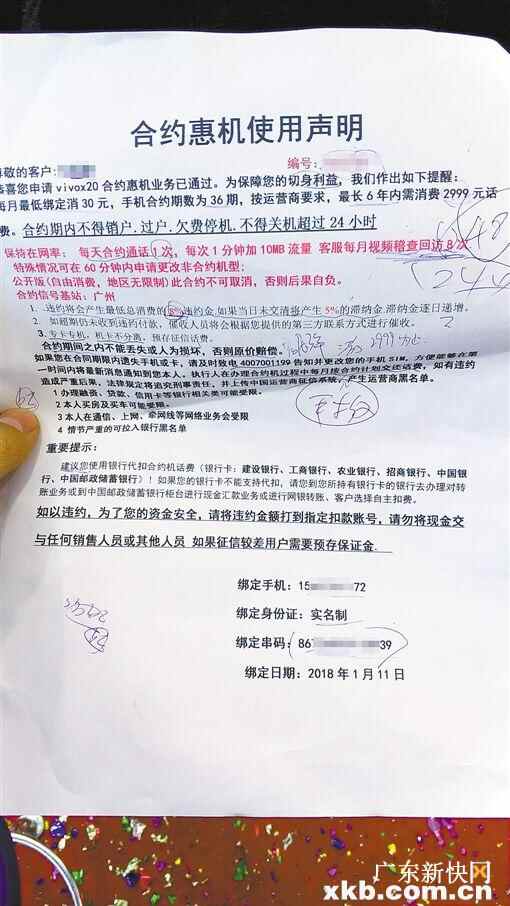 合约惠机使用声明
尊敬的客户:
编号:
恭喜您申请 vivox20 合约惠机业务已通过。为保障您的切身利益，我们作出如下提醒:
每月最低绑定消 30 元，手机合约期数为 36 期，按运营商要求，最长 6 年内需消费 2999 元话
费。合约期内不得销户.过户.欠费停机.不得关机超过 24 小时
保持在网率: 每天合约通话 1 次，每次 1 分钟加 10MB 流量 客服每月视频稽查回访 8 次
特殊情况可在 60 分钟内申请更改非合约机型:
公开版(自由消费，地区无限制)此合约不可取消，否则后果自负。
合约信号基站: 广州
1. 违约将会产生最低总消费的 8%违约金,如果当日未交清将产生 5%的滞纳金.滞纳金逐日递增。
2. 如超期仍未收到违约付款，催收人员将会根据您提供的第三方联系方式进行催收。
3. 专卡专机，机卡不分离，预存征信话费。
合约期间之内不能丢失或人为损坏，否则原价赔偿.
如果您在合同期限内遗失手机或卡，请及时致电 4007001199 告知并更改您的手机 SIM，方便能够在第
一时间内将最新消息通知到您本人。执行人在办理合约机过程中每月按合约计划交还话费，如有违约
造成严重后果，法律规定将追究刑事责任，并上传中国运营商征信系统，产生运营商黑名单。
1 办理融资、贷款、信用卡等银行相关类可能受限。
2 本人买房及买车可能受限.
3 本人在通信、上网、牵网线等网络业务会受限
4 情节严重的可拉入银行黑名单
重要提示:
建议您使用银行代扣合约机话费（银行卡: 建设银行、工商银行、农业银行、招商银行、中国银
行、中国邮政储蓄银行）！如果您的银行卡不能支持代扣，请您到您所持有银行卡的银行去办理对转
账业务或到中国邮政储蓄银行柜台进行现金汇款业务或进行网银转账、客户选择自主扣费。
如以违约，为了您的资金安全，请将违约金额打到指定扣款账号，请勿将现金交
与任何销售人员或其他人员 如果征信较差用户需要预存保证金.
绑定手机: 15 72
绑定身份证: 实名制
绑定串码: 86 39
绑定日期: 2018 年 1 月 11 日
广东新快网
xkb.com.cn